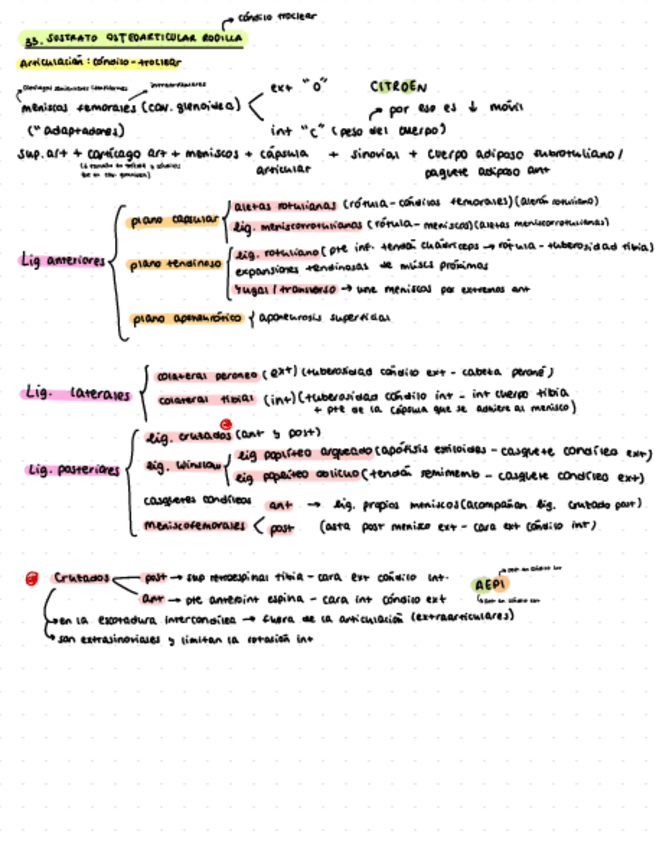 → cóndilo troclear
33. SUSTRATO OSTEOARTICULAR RODILLA
Articulación: cóndilo-troclear
intraarticulares
meniscos femorales (cav. glenoidea) ext "O" CITROËN
("adaptadores) int "C" (peso del cuerpo) → por eso es ↓ móvil
sup. art + cartílago art + meniscos + cápsula articular + sinovial + cuerpo adiposo subrotuliano / paquete adiposo ant
Lig anteriores
plano capsular
aletas rotulianas (rótula-cóndilos femorales) (alerón rotuliano)
lig. meniscorrotulianas (rótula-meniscos) (aletas meniscorrotulianas)
plano tendinoso
lig. rotuliano (pte inf. tendón cuádriceps → rótula - tuberosidad tibia)
expansiones tendinosas de múscs próximas
yugal / transverso → une meniscos por extremos ant
plano aponeurótico { aponeurosis superficial
Lig. laterales
colateral peroneo (ext) (tuberosidad cóndilo ext - cabeza peroné)
colateral tibial (int) (tuberosidad cóndilo int - int cuerpo tibia
+ pte de la cápsula que se adhiere al menisco)
Lig. posteriores
lig. cruzados (ant y post)
lig. Winslow
lig poplíteo arqueado (apófisis estiloides - casquete condíleo ext)
lig poplíteo oblicuo (tendón semimemb - casquete condíleo ext)
casquetes condíleos
meniscofemorales
ant → lig. propios meniscos (acompañan lig. cruzado post)
post (asta post menisco ext - cara ext cóndilo int)
Cruzados
post → sup retroespinal tibia - cara ext cóndilo int.
ant → pte anteroint espina - cara int cóndilo ext
AEPI
→ en la escotadura intercondílea → fuera de la articulación (extraarticulares)
→ son extrasinoviales y limitan la rotación int